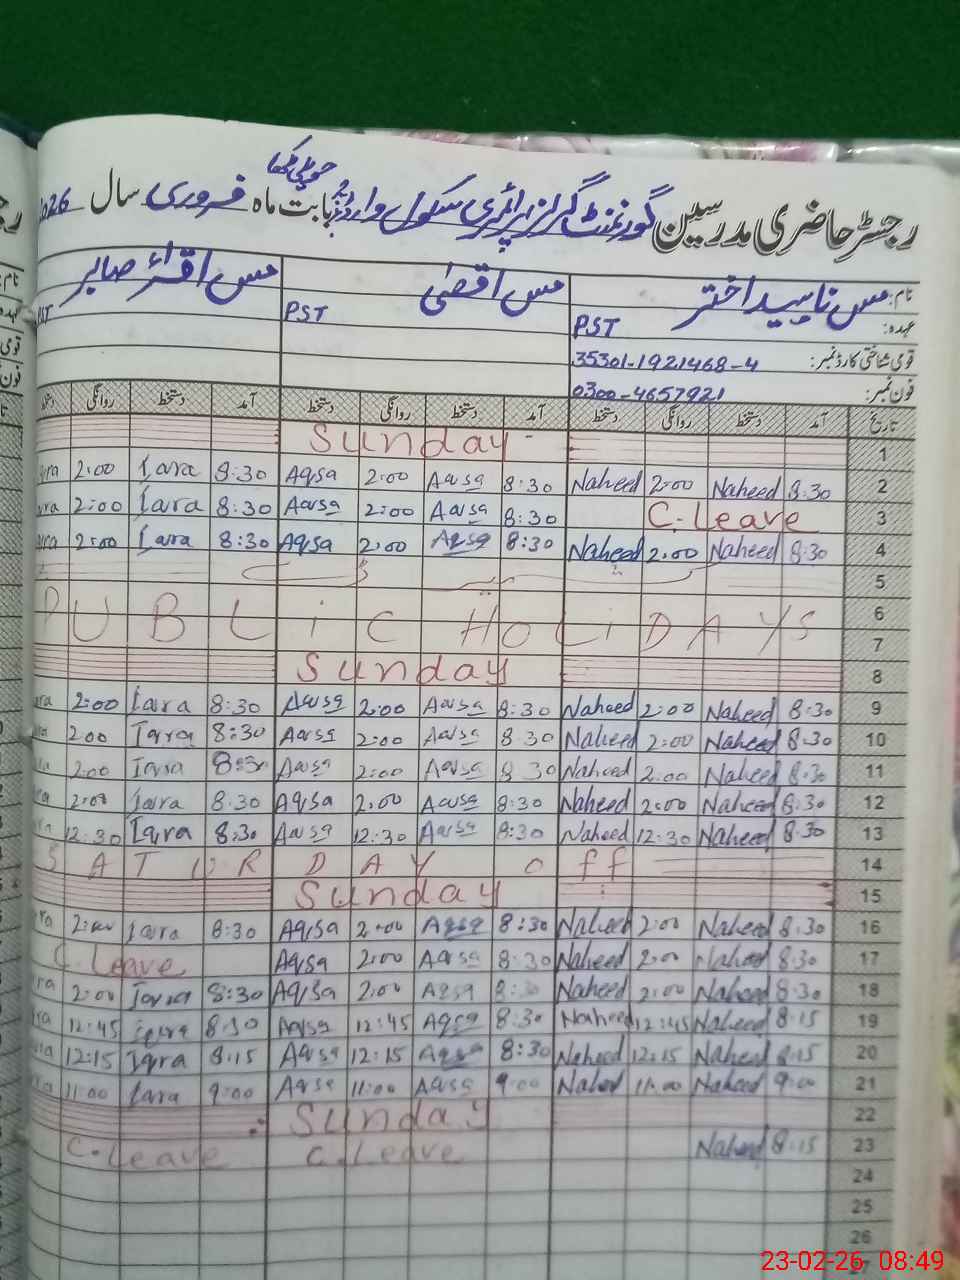 رجسٹر حاضری مدرسین گورنمنٹ گرلز پرائمری سکول وارڈ نمبر 2 حویلی لکھا بابت ماہ فروری سال 2026
نام: مس ناہید اختر مس اقصٰی مس اقراء صابر
عہدہ: PST PST PST
قومی شناختی کارڈ نمبر: 35301-1921468-4
فون نمبر: 0300-4657921
تاریخ آمد دستخط روانگی دستخط آمد دستخط روانگی دستخط آمد دستخط روانگی دستخط
Sunday 1
2:00 Iqra 8:30 Aqsa 2:00 Aqsa 8:30 Naheed 2:00 Naheed 8:30 2
2:00 Iqra 8:30 Aqsa 2:00 Aqsa 8:30 C.Leave 3
2:00 Iqra 8:30 Aqsa 2:00 Aqsa 8:30 Naheed 2:00 Naheed 8:30 4
5
PUBLiC HOLiDAYS 6
7
Sunday 8
2:00 Iqra 8:30 Aqsa 2:00 Aqsa 8:30 Naheed 2:00 Naheed 8:30 9
2:00 Iqra 8:30 Aqsa 2:00 Aqsa 8:30 Naheed 2:00 Naheed 8:30 10
2:00 Iqra 8:30 Aqsa 2:00 Aqsa 8:30 Naheed 2:00 Naheed 8:30 11
2:00 Iqra 8:30 Aqsa 2:00 Aqsa 8:30 Naheed 2:00 Naheed 8:30 12
12:30 Iqra 8:30 Aqsa 12:30 Aqsa 8:30 Naheed 12:30 Naheed 8:30 13
SATURDAY off 14
Sunday 15
2:00 Iqra 8:30 Aqsa 2:00 Aqsa 8:30 Naheed 2:00 Naheed 8:30 16
C.Leave Aqsa 2:00 Aqsa 8:30 Naheed 2:00 Naheed 8:30 17
2:00 Iqra 8:30 Aqsa 2:00 Aqsa 8:30 Naheed 2:00 Naheed 8:30 18
12:45 Iqra 8:30 Aqsa 12:45 Aqsa 8:30 Naheed 12:45 Naheed 8:15 19
12:15 Iqra 8:15 Aqsa 12:15 Aqsa 8:30 Naheed 12:15 Naheed 8:15 20
11:00 Iqra 9:00 Aqsa 11:00 Aqsa 9:00 Naheed 11:00 Naheed 9:00 21
Sunday 22
C.Leave C.Leave Naheed 8:15 23
24
25
26
23-02-26 08:49